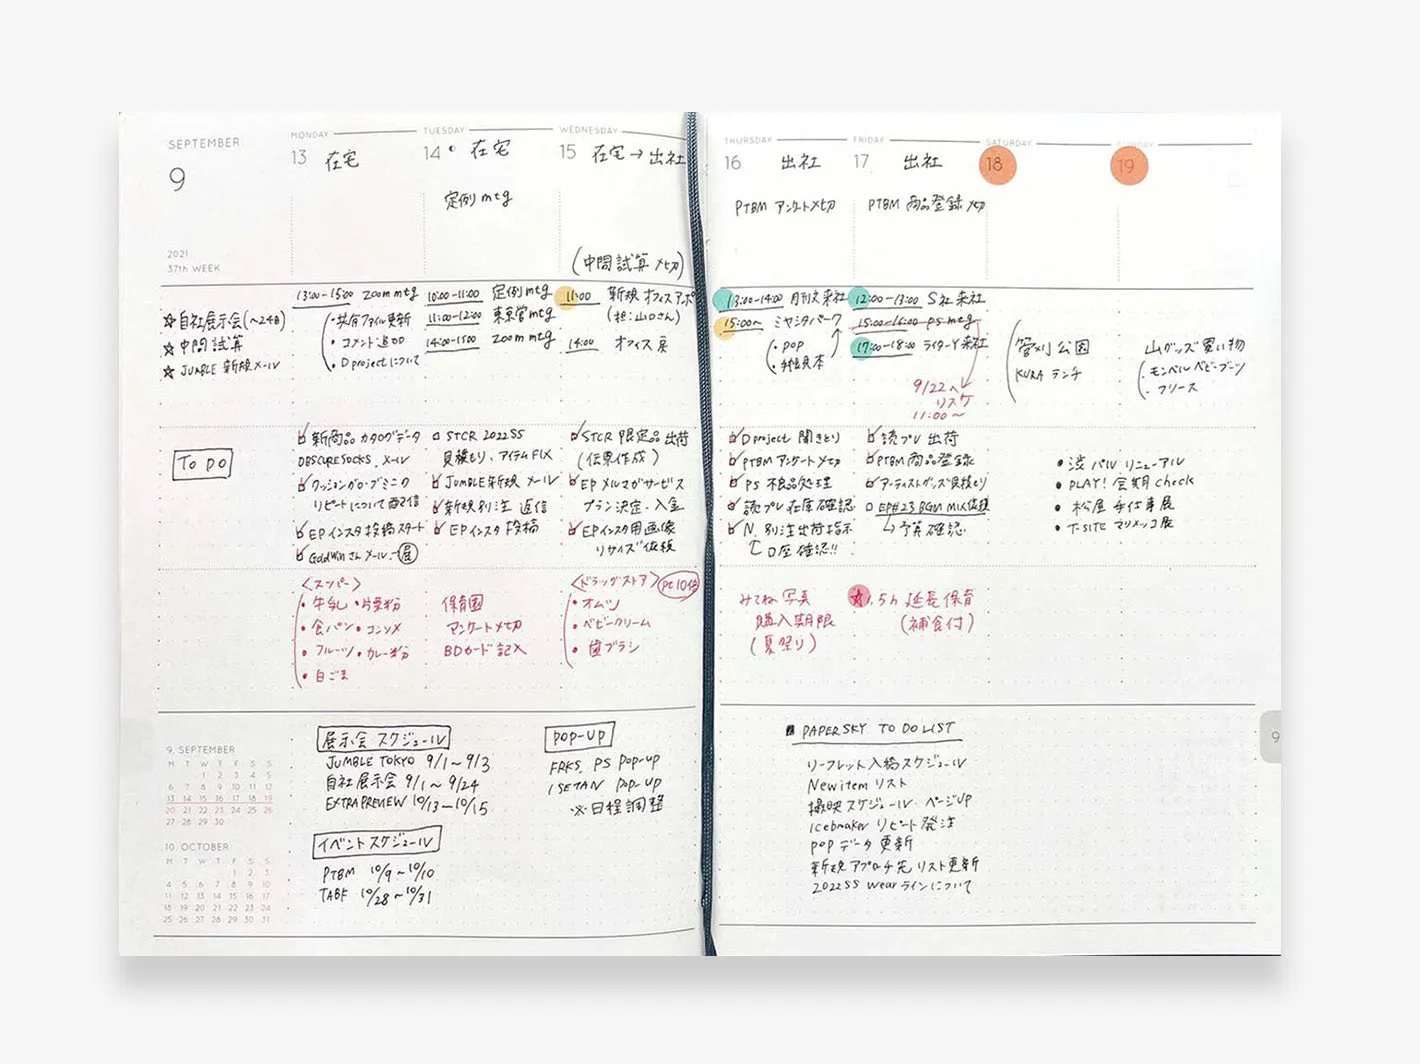 SEPTEMBER
9
2021
37th WEEK
☆自社展示会(~24日)
☆中間試算
☆JUMBLE 新規メール
To Do
MONDAY
13 在宅
13:00-15:00 zoom mtg
・共有ファイル更新
・コメント追加
・D projectについて
新商品 カタログデータ
OBSCURE SOCKS メール
クッションカバー ミニク
リピートについて 配信
EPインスタ投稿スタート
GoldWinさん メール 展
〈スーパー〉
・牛乳 ・片栗粉
・食パン ・コンソメ
・フルーツ ・カレー粉
・白ごま
TUESDAY
14 在宅
定例mtg
10:00-11:00 定例mtg
11:00-12:00 東京営mtg
14:00-15:00 zoom mtg
STCR 2022SS
見積もり、アイテムFIX
JUMBLE新規 メール
新規別注 返信
EPインスタ 投稿
保育園
アンケート〆切
BDカード記入
WEDNESDAY
15 在宅→出社
(中間試算 〆切)
11:00 新規 オフィスアポ
(担:山口さん)
14:00 オフィス 戻
STCR 限定品 出荷
(伝票作成)
EP メルマガサービス
プラン決定・入金
EPインスタ用画像
リサイズ依頼
〈ドラッグストア〉 Pt10倍
・オムツ
・ベビークリーム
・歯ブラシ
THURSDAY
16 出社
PTBM アンケート〆切
13:00-14:00 月刊文来社
15:00~ ミヤシタパーク
・POP
・見本
D project 聞きとり
PTBMアンケート〆切
PS 不良品処理
読プレ在庫確認
N.別注出荷指示
口座確認!!
みてね写真
購入期限
(夏祭り)
FRIDAY
17 出社
PTBM 商品登録 〆切
12:00-13:00 S社 来社
15:00-16:00 PS mtg
17:00-18:00 ライターY 来社
9/22へ
リスケ
11:00~
読プレ 出荷
PTBM商品登録
アーティストグッズ見積もり
EP#23 BGM MIX依頼
予算確認
☆1.5h 延長保育
(補食付)
SATURDAY
18
菅刈公園
KURA ランチ
SUNDAY
19
山グッズ買い物
・モンベル ベビーブーツ
・フリース
・渋パル リニューアル
・PLAY! 会期check
・松屋 手仕事展
・T-SITE マリメッコ展
9. SEPTEMBER
M T W T F S S
1 2 3 4 5
6 7 8 9 10 11 12
13 14 15 16 17 18 19
20 21 22 23 24 25 26
27 28 29 30
10. OCTOBER
M T W T F S S
1 2 3
4 5 6 7 8 9 10
11 12 13 14 15 16 17
18 19 20 21 22 23 24
25 26 27 28 29 30 31
展示会 スケジュール
JUMBLE TOKYO 9/1~9/3
自社展示会 9/1~9/24
EXTRA PREVIEW 10/13~10/15
イベントスケジュール
PTBM 10/9~10/10
TABF 10/28~10/31
POP-UP
FRKS. PS POP-UP
ISETAN POP-UP
※日程調整
■ PAPERSKY TO DO LIST
リーフレット入稿スケジュール
New item リスト
撮映スケジュール・ページUP
Icebreaker リピート 発注
POPデータ更新
新規アプローチ先 リスト更新
2022SS Wearラインについて
9